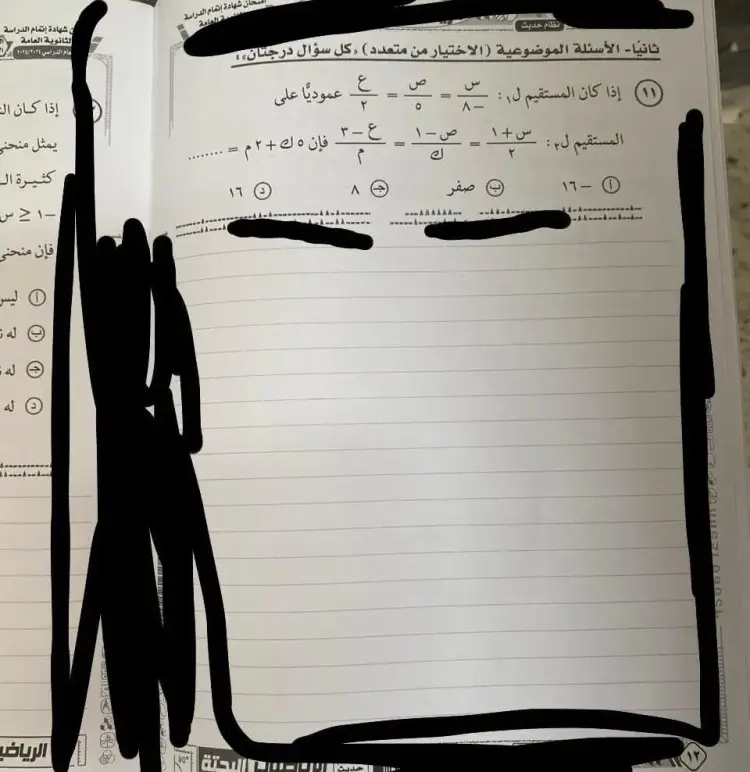 امتحان شهادة إتمام الدراسة
نظام حديث
ثانيًا- الأسئلة الموضوعية (الاختيار من متعدد) «كل سؤال درجتان»:
١١ إذا كان المستقيم ل١: س/-٨ = ص/٥ = ع/٢ عموديًا على
المستقيم ل٢: س+١/٢ = ص-١/ك = ع-٣/م فإن ٥ ك + ٢ م = ........
أ -١٦ ب صفر ج ٨ د ١٦
١٢
شهادة إتمام الدراسة
الثانوية العامة
إذا كان
يمثل منحنى
كثيرة
-١ ≤ س
فإن منحنى
أ ليس
ب له
ج له
د له